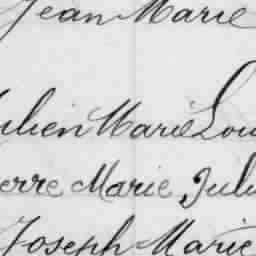 Jean Marie
ulien Marie Lou
erre Marie Juli
Joseph Marie